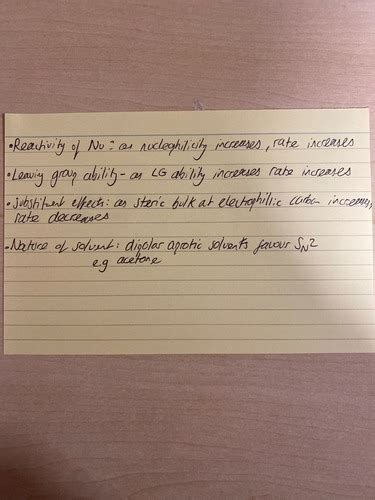 •Reactivity of Nu: as nucleophilicity increases, rate increases
•Leaving group ability - as LG ability increases rate increases
•substituent effects: as steric bulk at electrophillic carbon increases,
rate decreases
•Nature of solvent: dipolar aprotic solvents favour SN2
e.g acetone